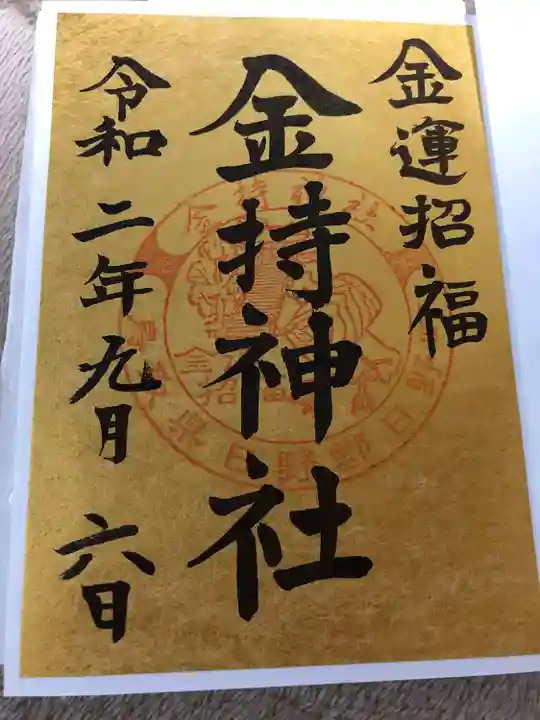 金運招福
金持神社
令和二年九月六日